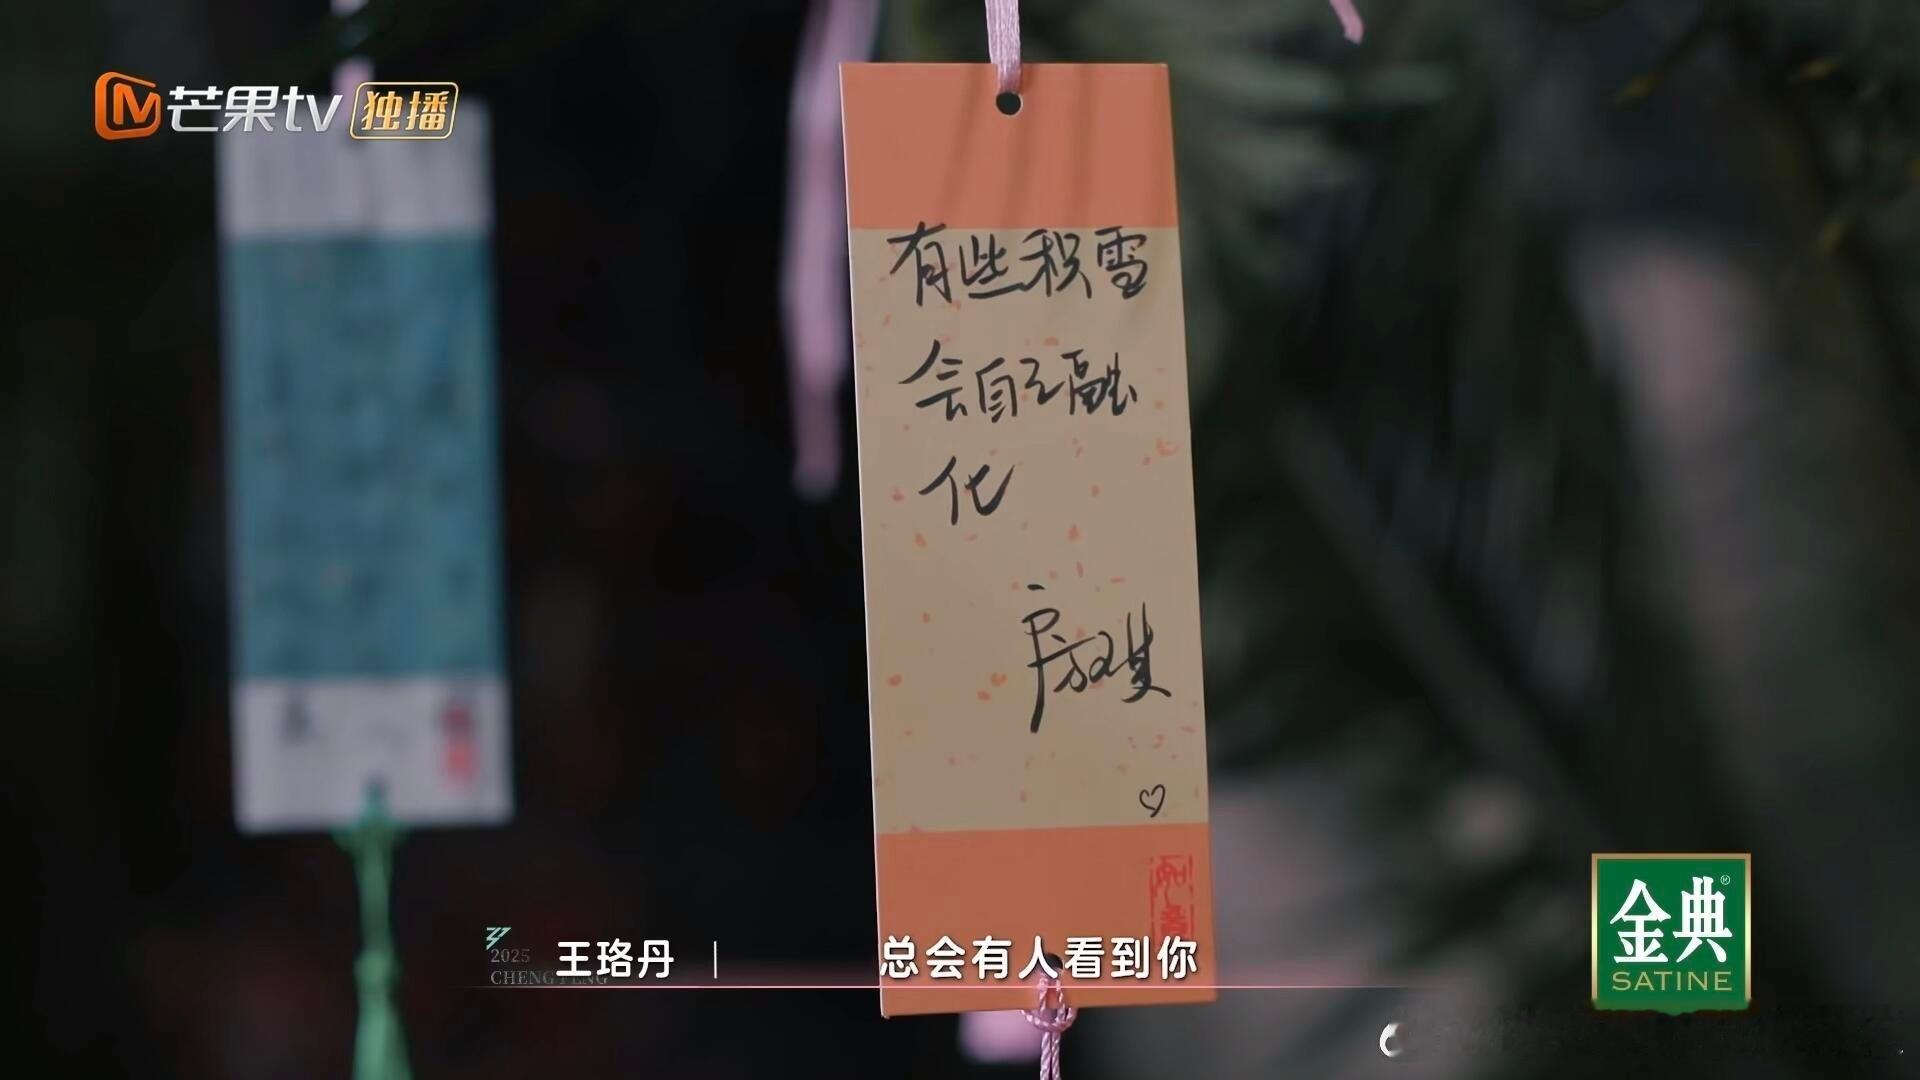 芒果tv 独播
有些积雪
会自己融
化
房琪
如意
2025
CHENG FENG
王珞丹 | 总会有人看到你
金典®
SATINE